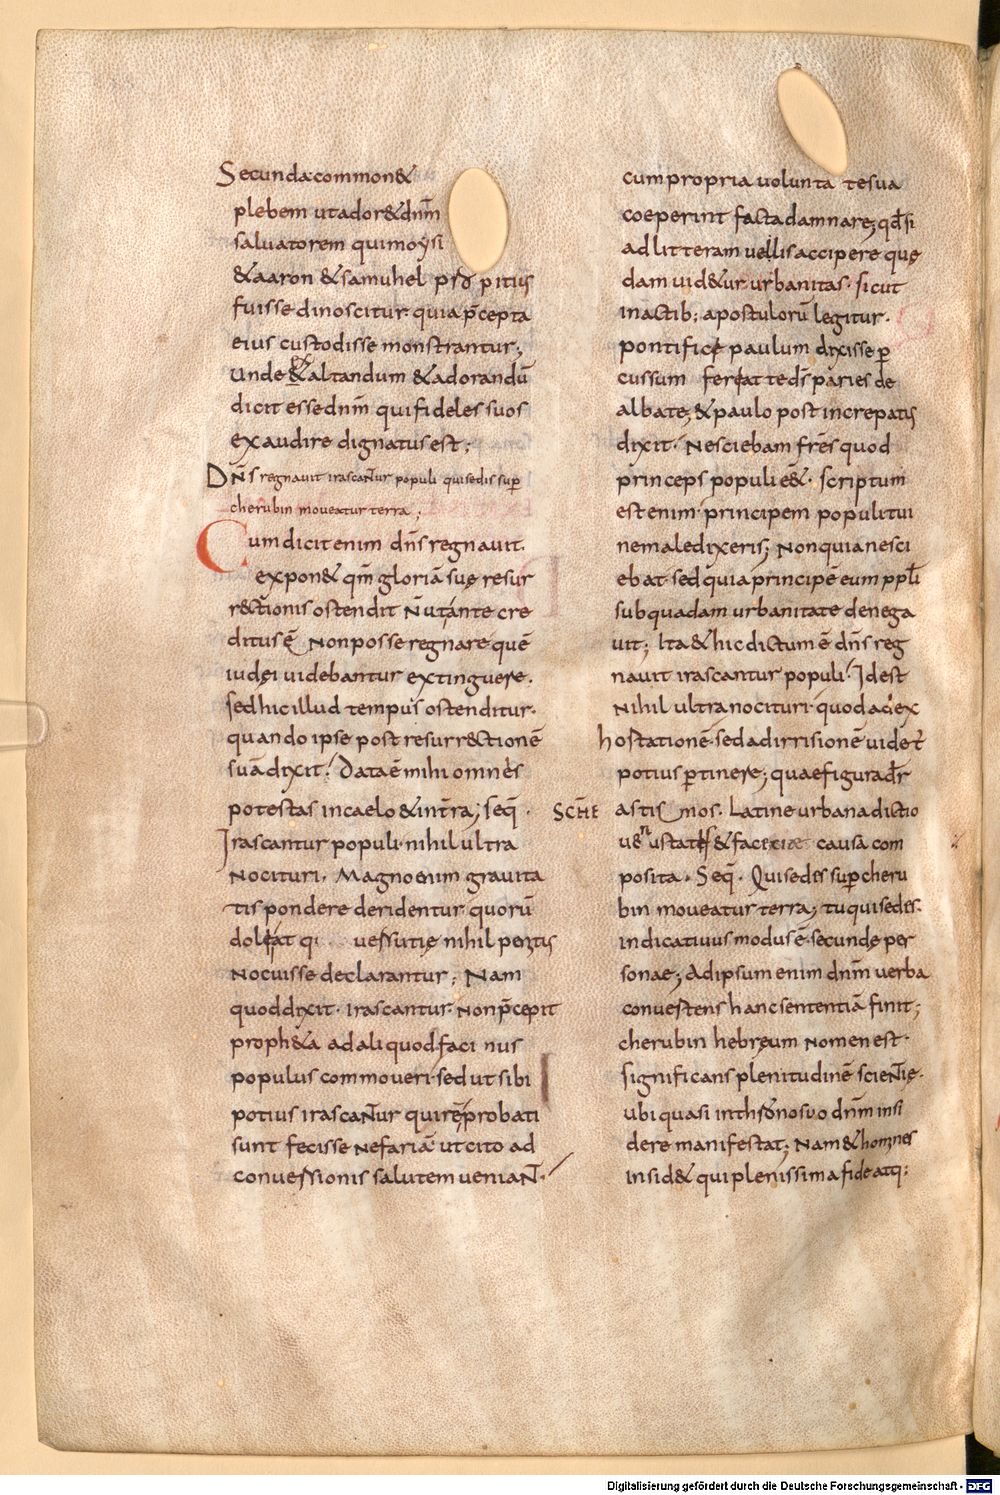 Secunda common&
plebem ut ador& dnm̅
salvatorem qui moẏsi
& aaron & samuhel p̅s̅d̅ pitius
fuisse dinoscitur quia p̅cepta
eius custodisse monstrantur;
unde & altandum & adorandū
dicit esse dnm̅ qui fideles suos
exaudire dignatus est;
Dn̅s regnauit irascant̅ur populi qui sedis sup̅
cherubin moveatur terra;
Cum dicit enim dn̅s regnauit.
expon& qm̅ gloriā suę resur
r&ctionis ostendit N̅ut ante cre
ditus ē Non posse regnare quē
iudęi uidebantur extinguere.
sed hic illud tempus ostenditur.
quando ipse post resurr&ctionē
suā dixit; Data ē mihi omnes
potestas in caelo & int̅ra; seq̅.
Irascantur populi. nihil ultra
Nocituri. Magno enim gravita
tis pondere deridentur quorū
versutię nihil
Nocuisse declarantur; Nam
quod dixit. irascantur. Non p̅cepit
proph&a ad aliquod faci nus
populus commoveri. sed ut sibi
potius irascant̅ur qui rē probati
sunt fecisse nefariā ut cito ad
conversionis salutem veniant̅.
cum propria uolunta te sua
coeperint facta damnare; qd̅ si
ad litteram uellis accipere quę
dam uid&ur urbanitas. sicut
in actib; apostulorū legitur.
pontifice paulum dixisse p̅
cussum feriat te ds̅ paries de
albate; & paulo post increpatus
dixit. Nesciebam frē̅s quod
princeps populi e&. scriptum
est enim. principem populi tui
ne maledixeris; Non quia nesci
ebat. sed quia principē eum pp̅li
sub quadam urbanitate denega
uit; Ita & hic dictum ē dn̅s reg
nauit irascantur populi. Idest
Nihil ultra nocituri. quod ad ex
hostationē. sed ad irrisionē uidet̅
potius p̅tinere; quae figura dr̅
SCHE astis mos. Latine urbana dictio
uenustatis & causa com
posita. Seq̅. Qui sedes sup̅ cheru
bin moveatur terra; tu qui sedes.
indicativus modus ē. secundę per
sonae; Ad ipsum enim dnm̅ verba
convertens hanc sententiā finit;
cherubin hebreum nomen est.
significans plenitudinē scient̅ię.
ubi quasi in thrōno suo dnm̅ insi
dere manifestat; Nam & homines
insid& qui plenissima fide atq;
Digitalisierung gefördert durch die Deutsche Forschungsgemeinschaft - DFG